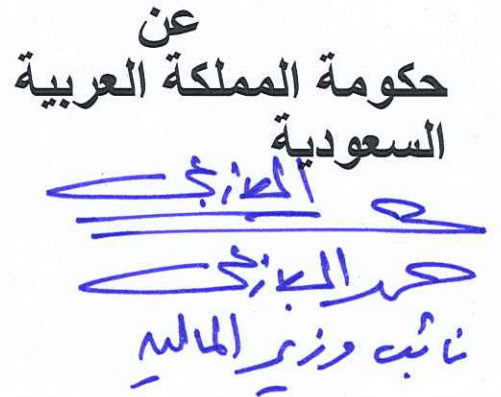 عن
حكومة المملكة العربية
السعودية
البازعي
حمد البازعي
نائب وزير المالية